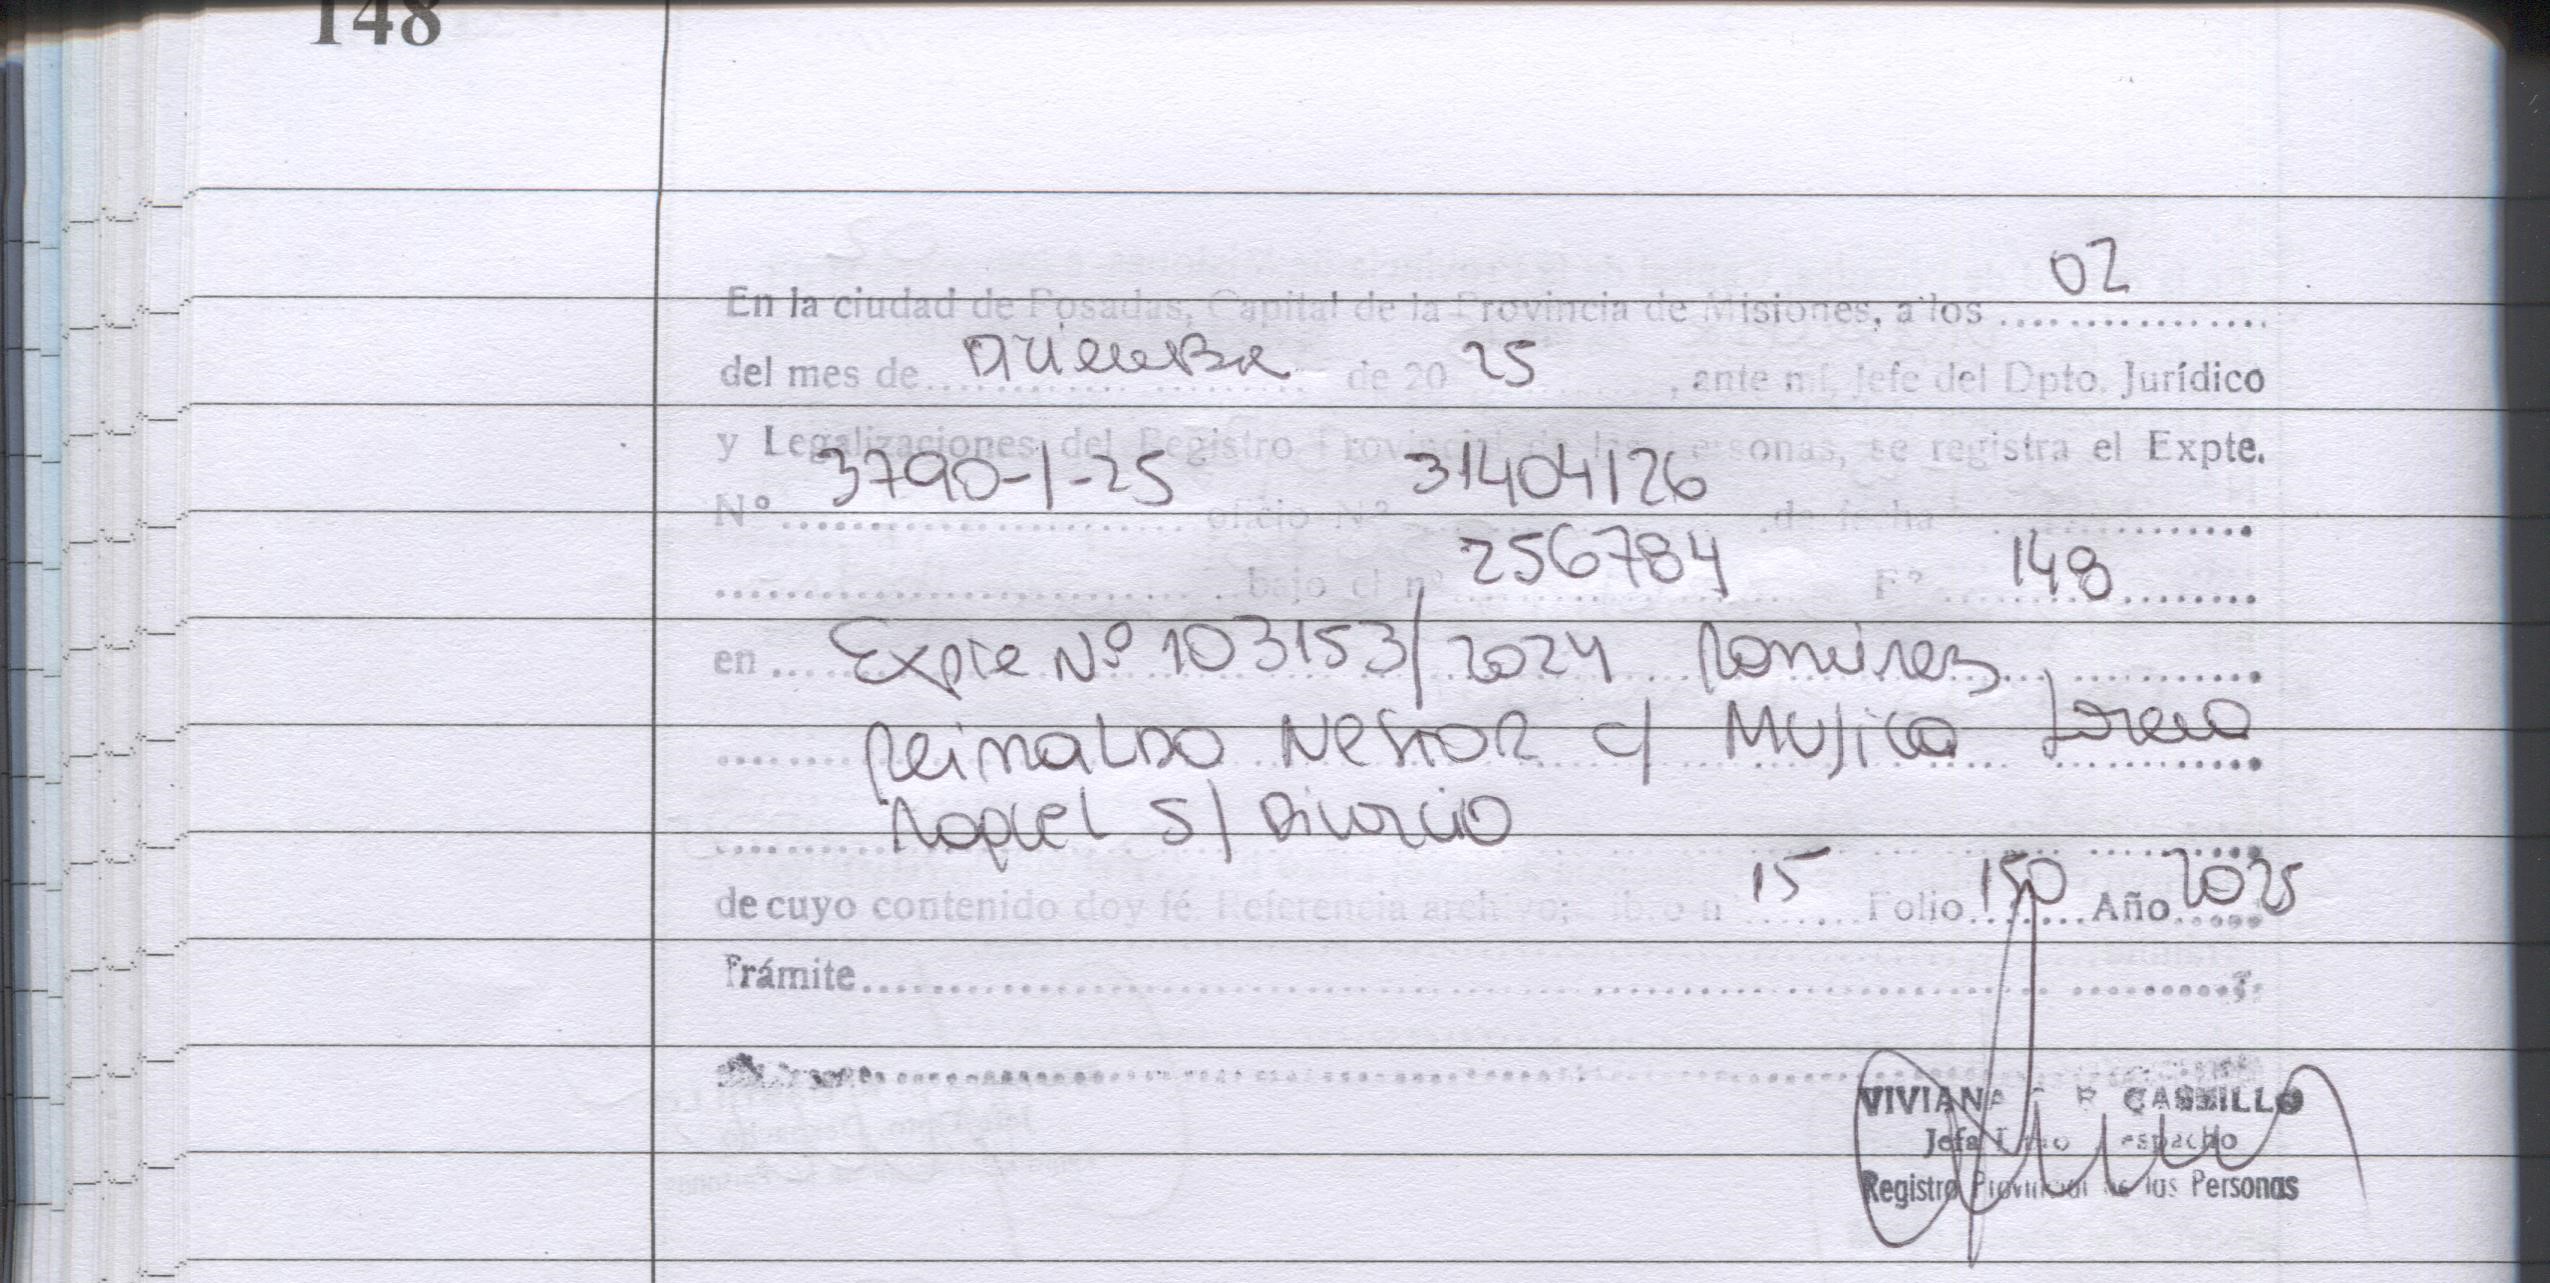 148
02
En la ciudad de Posadas, Capital de la Provincia de Misiones, a los ....
del mes de Diciembre de 20 25, ante mí, Jefe del Dpto. Jurídico
y Legalizaciones del Registro Provincial de las Personas, se registra el Expte.
Nº 3790-1-25 oficio Nº 31404126 de fecha
bajo el nº 256784 Fº 148
en Expte Nº 103153/2024 Ramirez
Reinaldo Nestor c/ Mujica Lorena
Raquel s/ Divorcio
de cuyo contenido doy fé. Referencia archivo; libro n 15 Folio 150 Año 2025
Trámite
VIVIANA CASTILLO
Jefa Dpto Despacho
Registro Provincial de las Personas